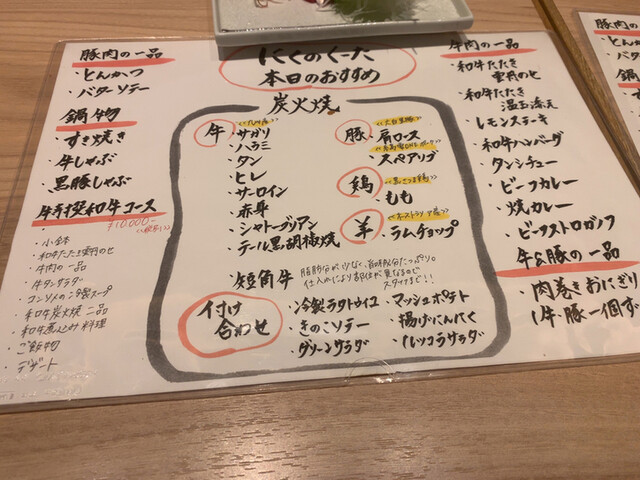 にくのくーた
本日のおすすめ
豚肉の一品
・とんかつ
・バターソテー
鍋物
・すき焼き
・牛しゃぶ
・黒豚しゃぶ
特撰和牛コース
¥10,000-
・小鉢
・和牛たたき雲丹のせ
・牛肉の一品
・牛タンサラダ
・コンソメの冷製スープ
・和牛炭火焼 二品
・和牛煮込み料理
・ご飯物
・デザート
炭火焼
牛
・サガリ
・ハラミ
・タン
・ヒレ
・サーロイン
・赤身
・シャトーブリアン
・テール黒胡椒焼
・短角牛
脂肪分が少なく、旨味成分たっぷり。
仕入れにより部位が異なるので
スタッフまで!!
豚
・肩ロース
・スペアリブ
鶏
・もも
羊
<<オーストラリア産>>
・ラムチョップ
付け合わせ
・冷製ラタトゥイユ
・きのこソテー
・グリーンサラダ
・マッシュポテト
・揚げにんにく
・ルッコラサラダ
牛肉の一品
・和牛たたき
雲丹のせ
・和牛たたき
温玉添え
・レモンステーキ
・和牛ハンバーグ
・タンシチュー
・ビーフカレー
・焼カレー
・ビーフストロガノフ
牛&豚の一品
・肉巻きおにぎり
豚肉の
・とん
・バター
鍋
・すき
・牛
・黒